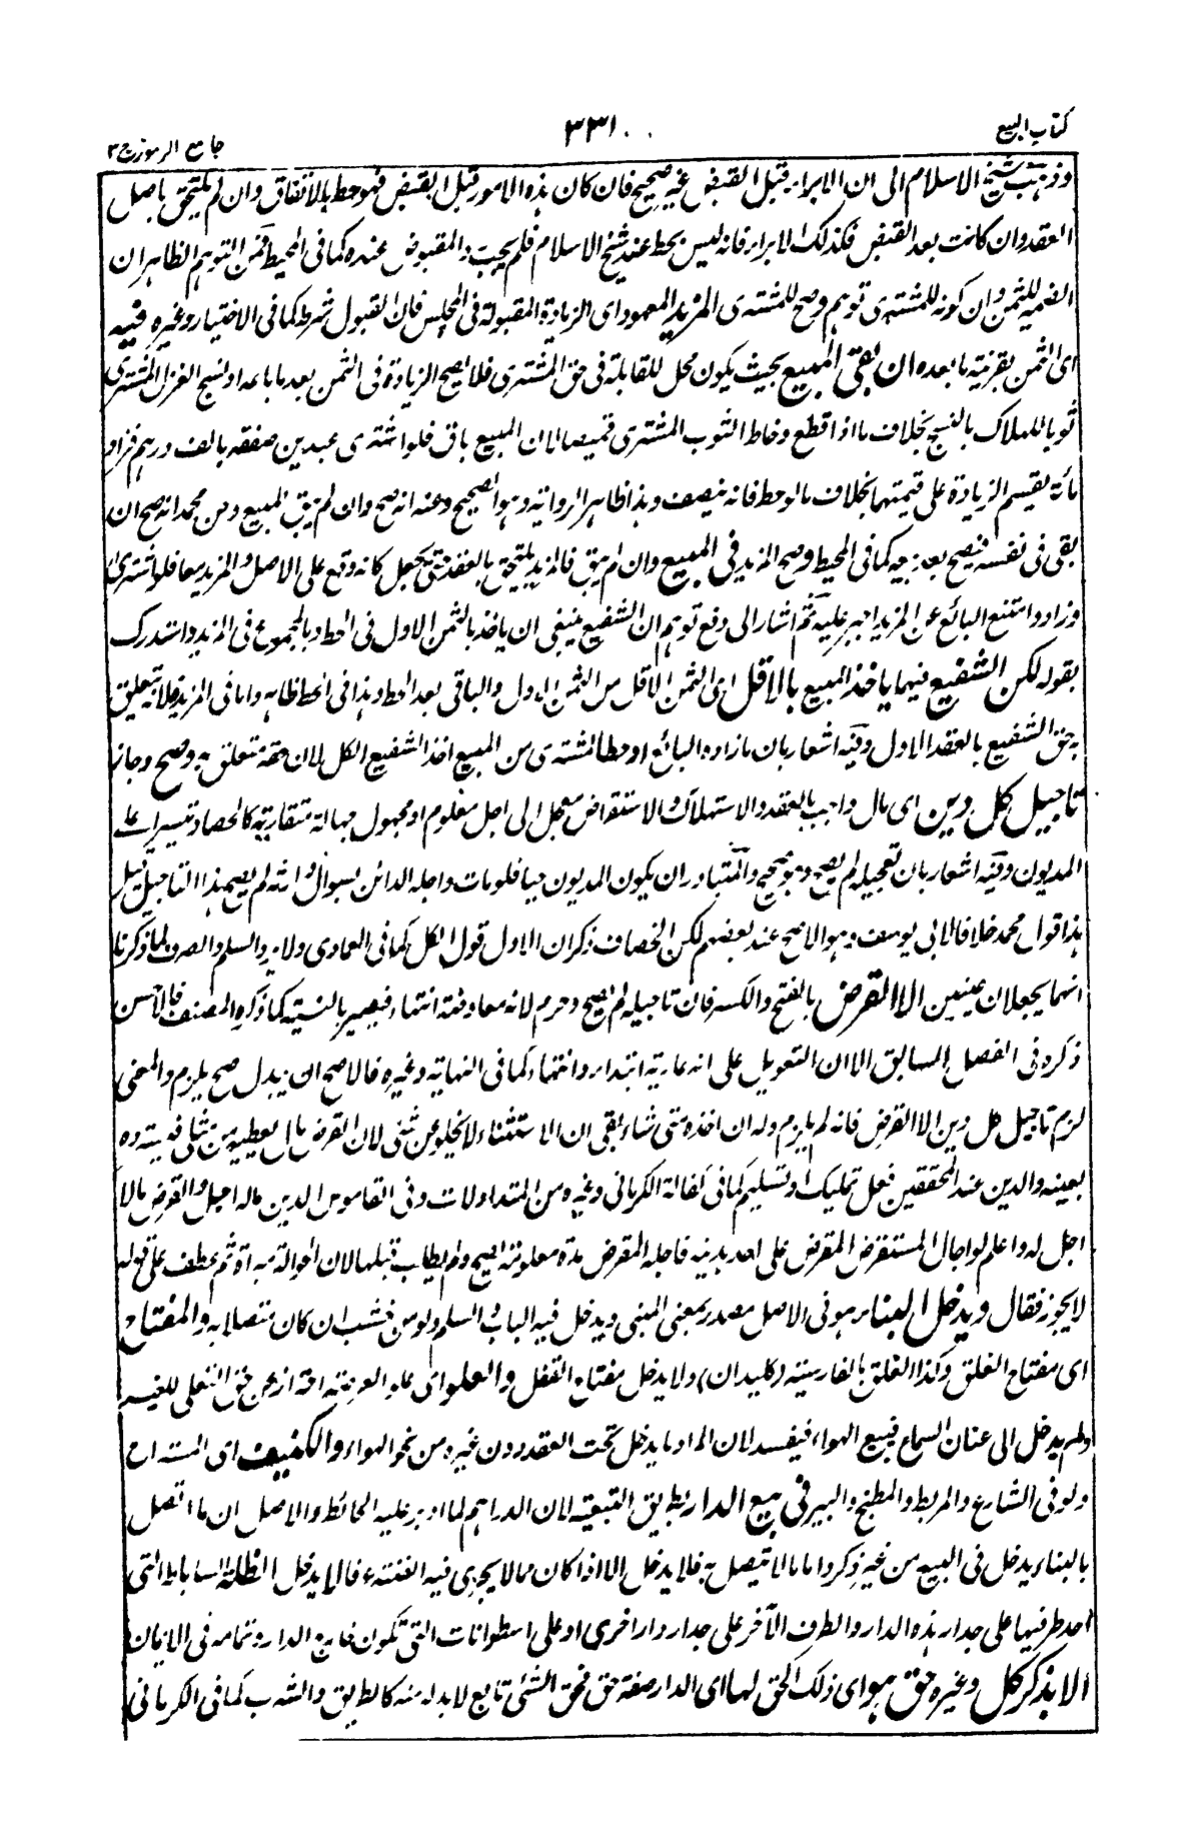 كتاب البيع
٣٣١
جامع الرموز ج ٣
وذهب شيخ الاسلام الى ان الابراء قبل القبض غير صحيح فان كان هذه الامور قبل القبض فهو حط بالاتفاق وان لم يلتحق باصل
العقد وان كانت بعد القبض فكذلك الابراء فانه ليس بحط عند شيخ الاسلام فلم يجب رد المقبوض عنده كما فى المحيط فمن التوهم الظاهر ان
الضمير للثمن وان كونه للمشترى توهم وصح للمشترى المزيد المعهود اى الزيادة المقبولة فى المجلس فان القبول شرط كما فى الاختيار وغيره فيه
اى الثمن بقرينة ما بعده ان بقى المبيع بحيث يكون محل للمقابلة فى حق المشترى فلا يصح الزيادة فى الثمن بعد ما باعه او نسج الغزل المشترى
ثوبا للهلاك بالنسج بخلاف ما اذا قطع وخاط الثوب المشترى قميصا لان المبيع باق فلو اشترى عبدين صفقة بالف درهم فزاد
مائة يقسم الزيادة على قيمتهما بخلاف ما لو حط فانه ينصف وهذا ظاهر الرواية وهو الصحيح وعنه انه صح وان لم يبق المبيع وعن محمد انه صح ان
بقى فى نفسه فيصح بعد بيعه كما فى المحيط وصح المزيد فى المبيع وان لم يبق فالمزيد يلتحق بالعقد حتى يجعل كانه وقع على الاصل والمزيد معا فلو اشترى
وزاد وامتنع البائع عن المزيد اجبر عليه ثم اشار الى دفع توهم ان الشفيع ينبغى ان ياخذ بالثمن الاول فى الحط وبالمجموع فى المزيد واستدرك
بقوله لكن الشفيع فيهما ياخذ المبيع بالاقل اى الثمن الاقل من الثمن الاول والباقى بعد الحط وهذا فى الحط ظاهر واما فى المزيد فلانه تعلق
به حق الشفيع بالعقد الاول وفيه اشعار بان ما زاده البائع او حط المشترى من المبيع اخذ الشفيع الكل لان حقه متعلق به وصح وجاز
تاجيل كل دين اى مال واجب بالعقد والاستهلاك والاستقراض معجل الى اجل معلوم او مجهول جهالة متقاربة كالحصاد تيسيرا على
المديون وفيه اشعار بان تعجيله لم يصح وهو صحيح والمتبادر ان يكون المديون حيا فلو مات واجله الدائن بسوال وارثه لم يصح هذا التاجيل قيل
هذا قول محمد خلافا لابى يوسف وهو الاصح عند بعضهم لكن الخصاف ذكر ان الاول قول الكل كما فى العمادى ولا يرد السلم والصرف لما ذكرنا
انهما يجعلان عينين الا القرض بالفتح والكسر فان تاجيله لم يصح وحرم لانه معاوضة انتهاء فيصير بالنسية كما ذكره المصنف فالاحسن
ذكره فى الفصل السابق الا ان التعويل على انه عارية ابتداء وانتهاء كما فى النهاية وغيره فالاصح ان يبدل صح يلزم والمعنى
لزم تاجيل كل دين الا القرض فانه لم يلزم وله ان اخذه متى شاء بقى ان الاستثناء لا يخلو عن شئ لان القرض مال يعطيه من مثلى فيسترده
بعينه والدين عند المحققين فعل تمليك او تسليم كما فى كفالة الكرمانى وغيره من المتداولات وفى القاموس الدين ماله اجل والقرض مالا
اجل له واعلم لو احال المستقرض المقرض على احد بدينه فاجله المقرض مدة معلومة صح ولم يطالب قبلها لان الحوالة مبراة ثم عطف على قوله
لا يجوز فقال ويدخل البناء هو فى الاصل مصدر بمعنى المبنى ويدخل فيه الباب والسلم ولو من خشب ان كان متصلا به والمفتاح
اى مفتاح الغلق وكذا الغلق بالفارسية (كليدان) ولا يدخل مفتاح القفل والعلو اى علو العرصة احتراز عن حق التعلى للغير
ولم يدخل الى عنان السماء فبيع الهواء فيفسد لان المراد ما يدخل تحت العقد دون غيره من نحو الهواء والكنيف اى المستراح
ولو فى الشارع والمربط والمطبخ والبير فى بيع الدار بطريق التبعية لان الدار اسم لما ادير عليه الحائط والاصل ان ما اتصل
بالبناء يدخل فى البيع من غير ذكر واما ما لا يتصل به فلا يدخل الا اذا كان مما لا يجرى فيه الضنة فالا يدخل الظلة الساباط التى
احد طرفيها على جدار هذه الدار والطرف الآخر على جدار دار اخرى او على اسطوانات التى تكون خارج الدار وتمامه فى الايمان
الا بذكر كل وغيره حق هو اى ذلك الحق لها اى الدار صفة حق فحق الشئ تابع لا بد له منه كالطريق والشرب كما فى الكرمانى